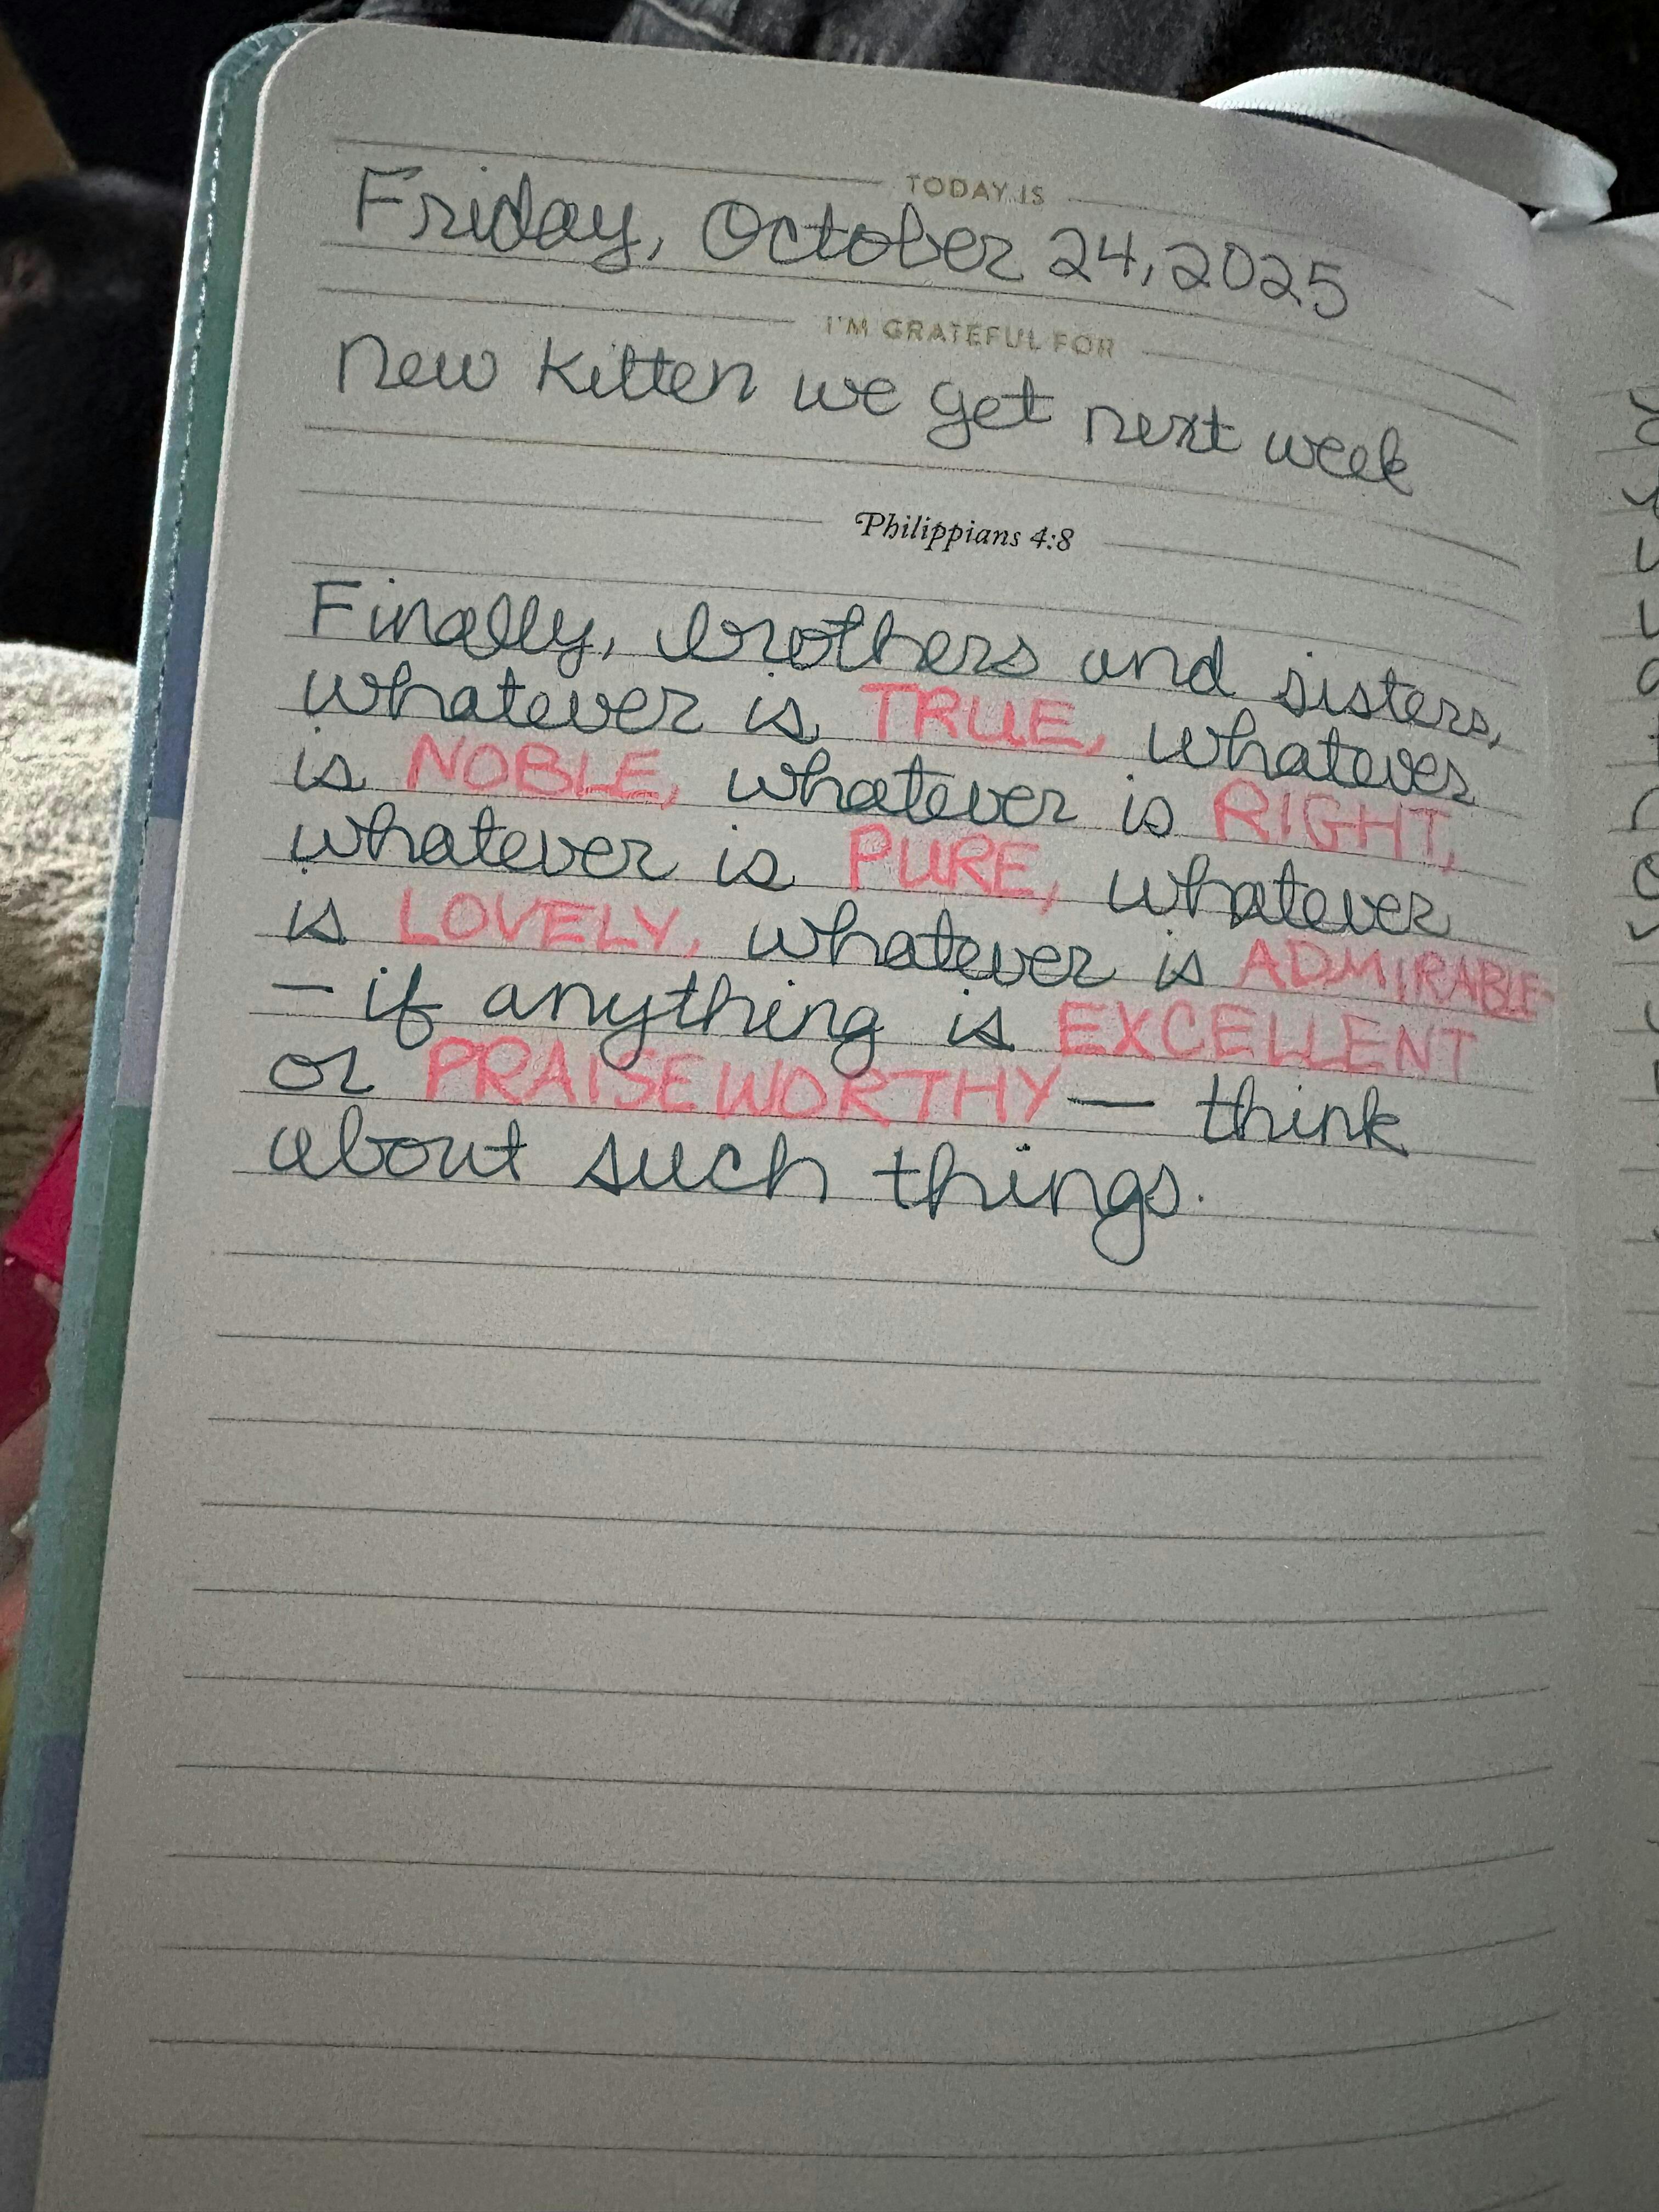 TODAY IS
Friday, October 24, 2025
I'M GRATEFUL FOR
New Kitten we get next week
Philippians 4:8
Finally, brothers and sisters,
whatever is TRUE, whatever
is NOBLE, whatever is RIGHT,
whatever is PURE, whatever
is LOVELY, whatever is ADMIRABLE-
— if anything is EXCELLENT
or PRAISEWORTHY — think
about such things.